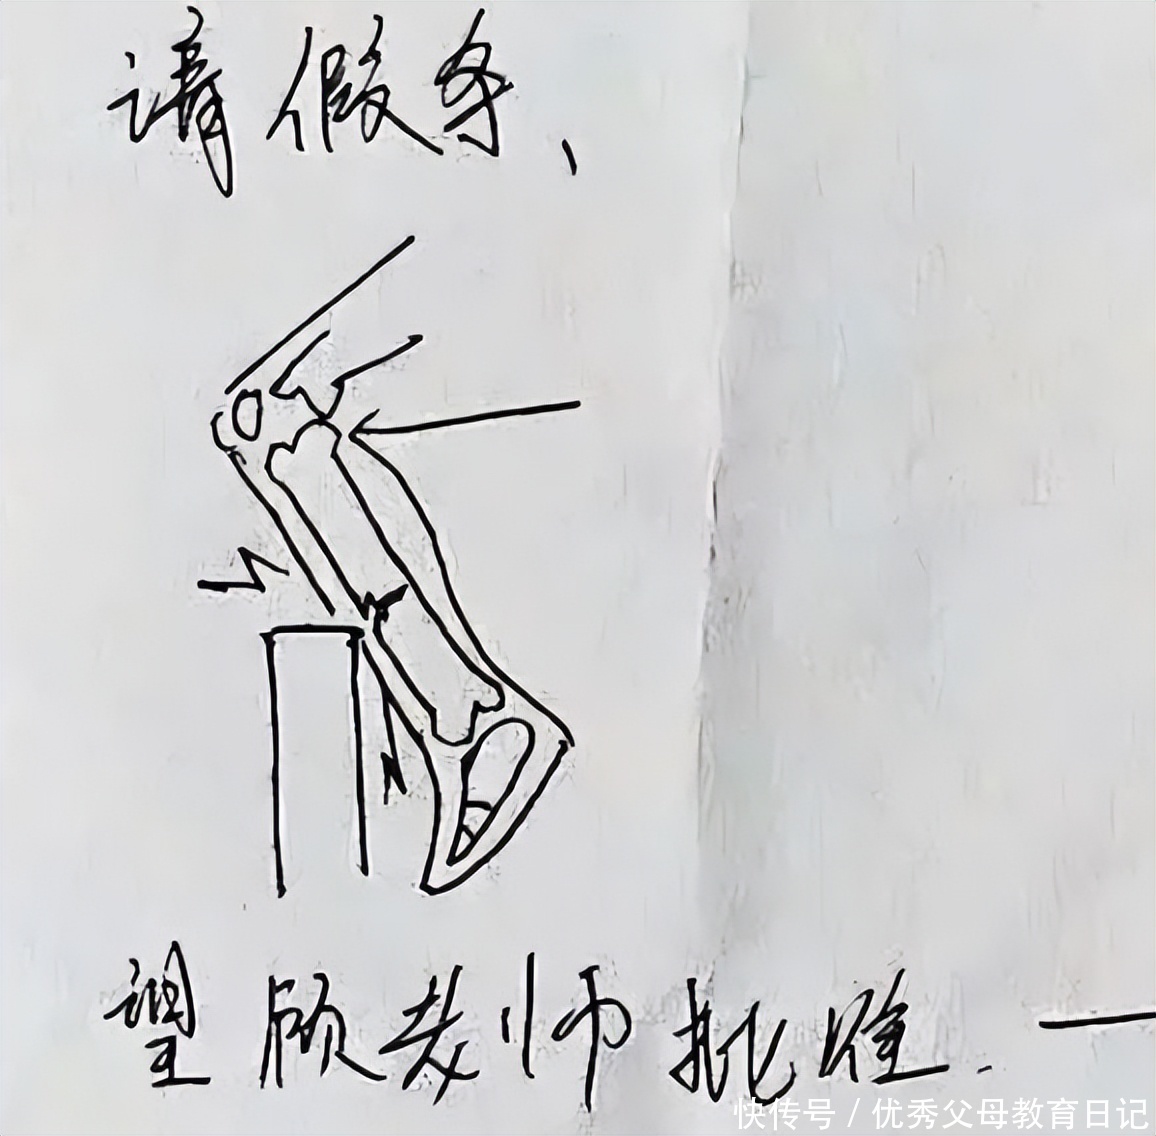 请假条、
望顾老师批准.
快传号 / 优秀父母教育日记